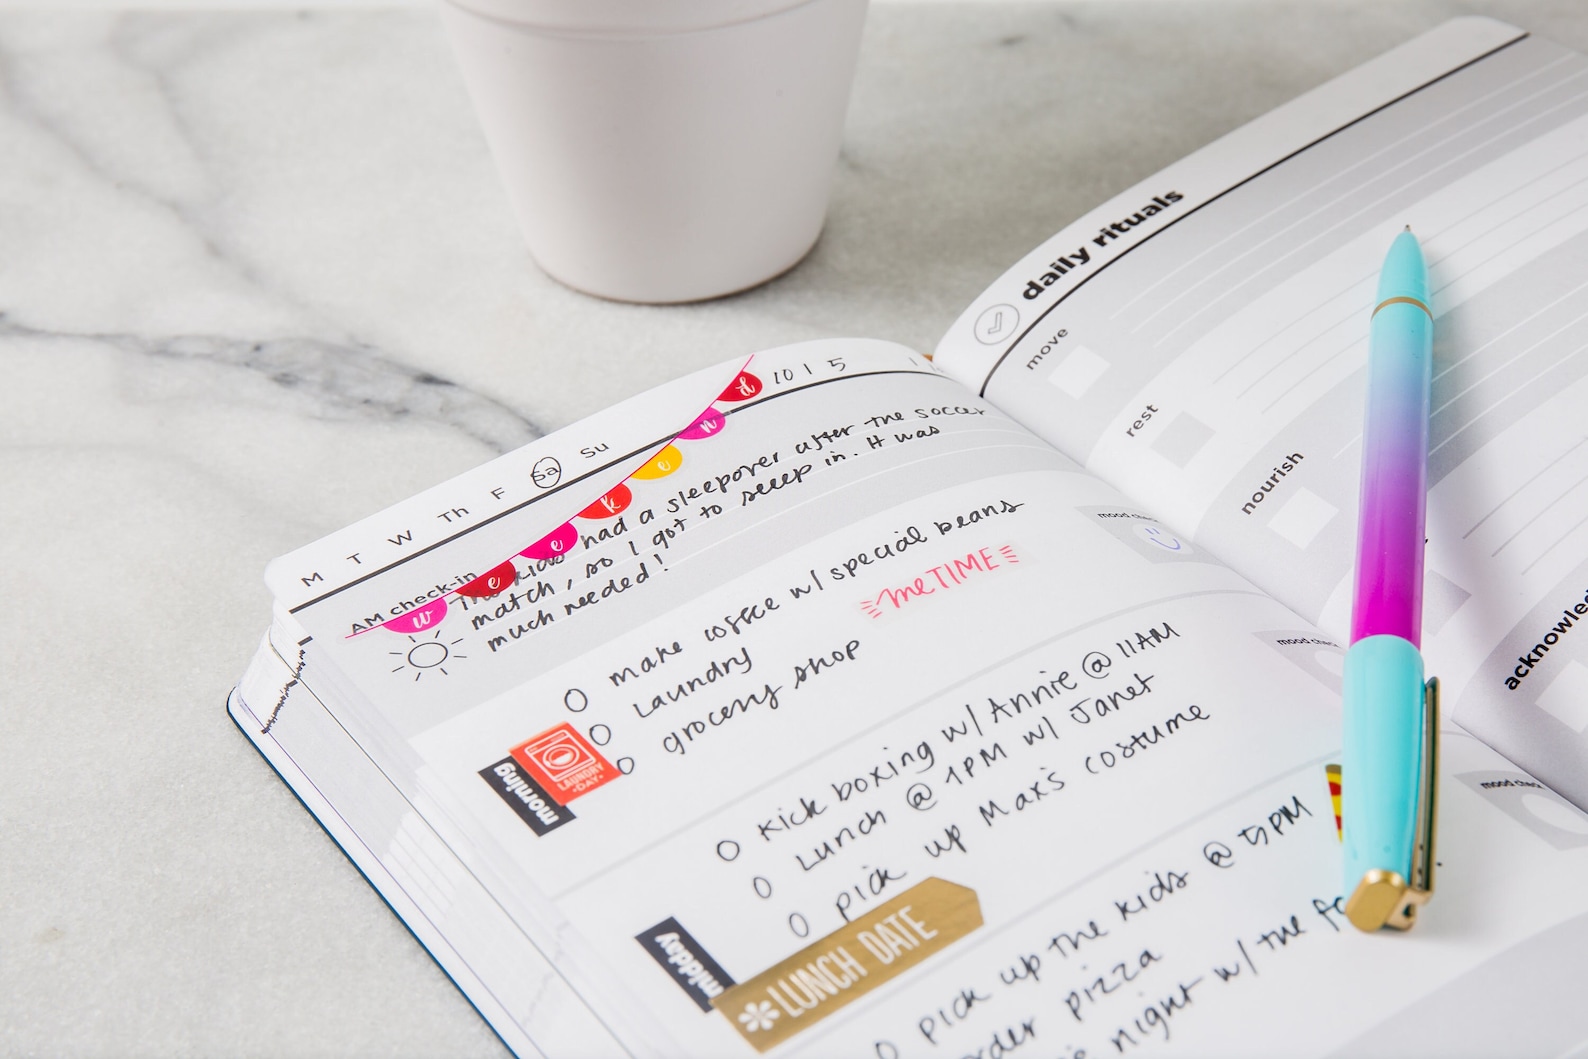 M T W Th F Sa Su
10 1 5
weekend
AM check-in
The kids had a sleepover after the soccer
match, so I got to sleep in. It was
much needed!
mood check
make coffee w/ special beans
Laundry
me TIME
grocery shop
morning
LAUNDRY
DAY
mood check
kick boxing w/ Annie @ 11AM
Lunch @ 1PM w/ Janet
pick up Max's costume
midday
LUNCH DATE
mood check
pick up the kids @ 5PM
order pizza
night w/ the
daily rituals
move
rest
nourish